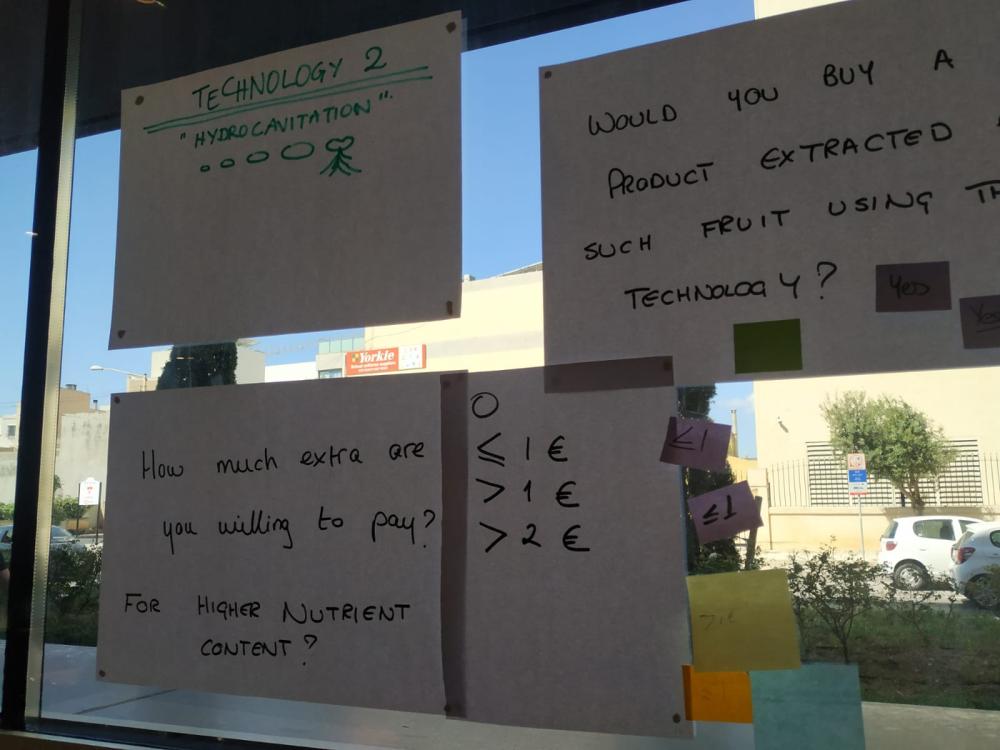 TECHNOLOGY 2
"HYDROCAVITATION"
WOULD YOU BUY A
PRODUCT EXTRACTED
SUCH FRUIT USING TH
TECHNOLOGY?
Yes
Yes
Yorkie
How much extra are
you willing to pay?
FOR HIGHER NUTRIENT
CONTENT?
0
≤ 1 €
> 1 €
> 2 €
≤1
≤1
>1€